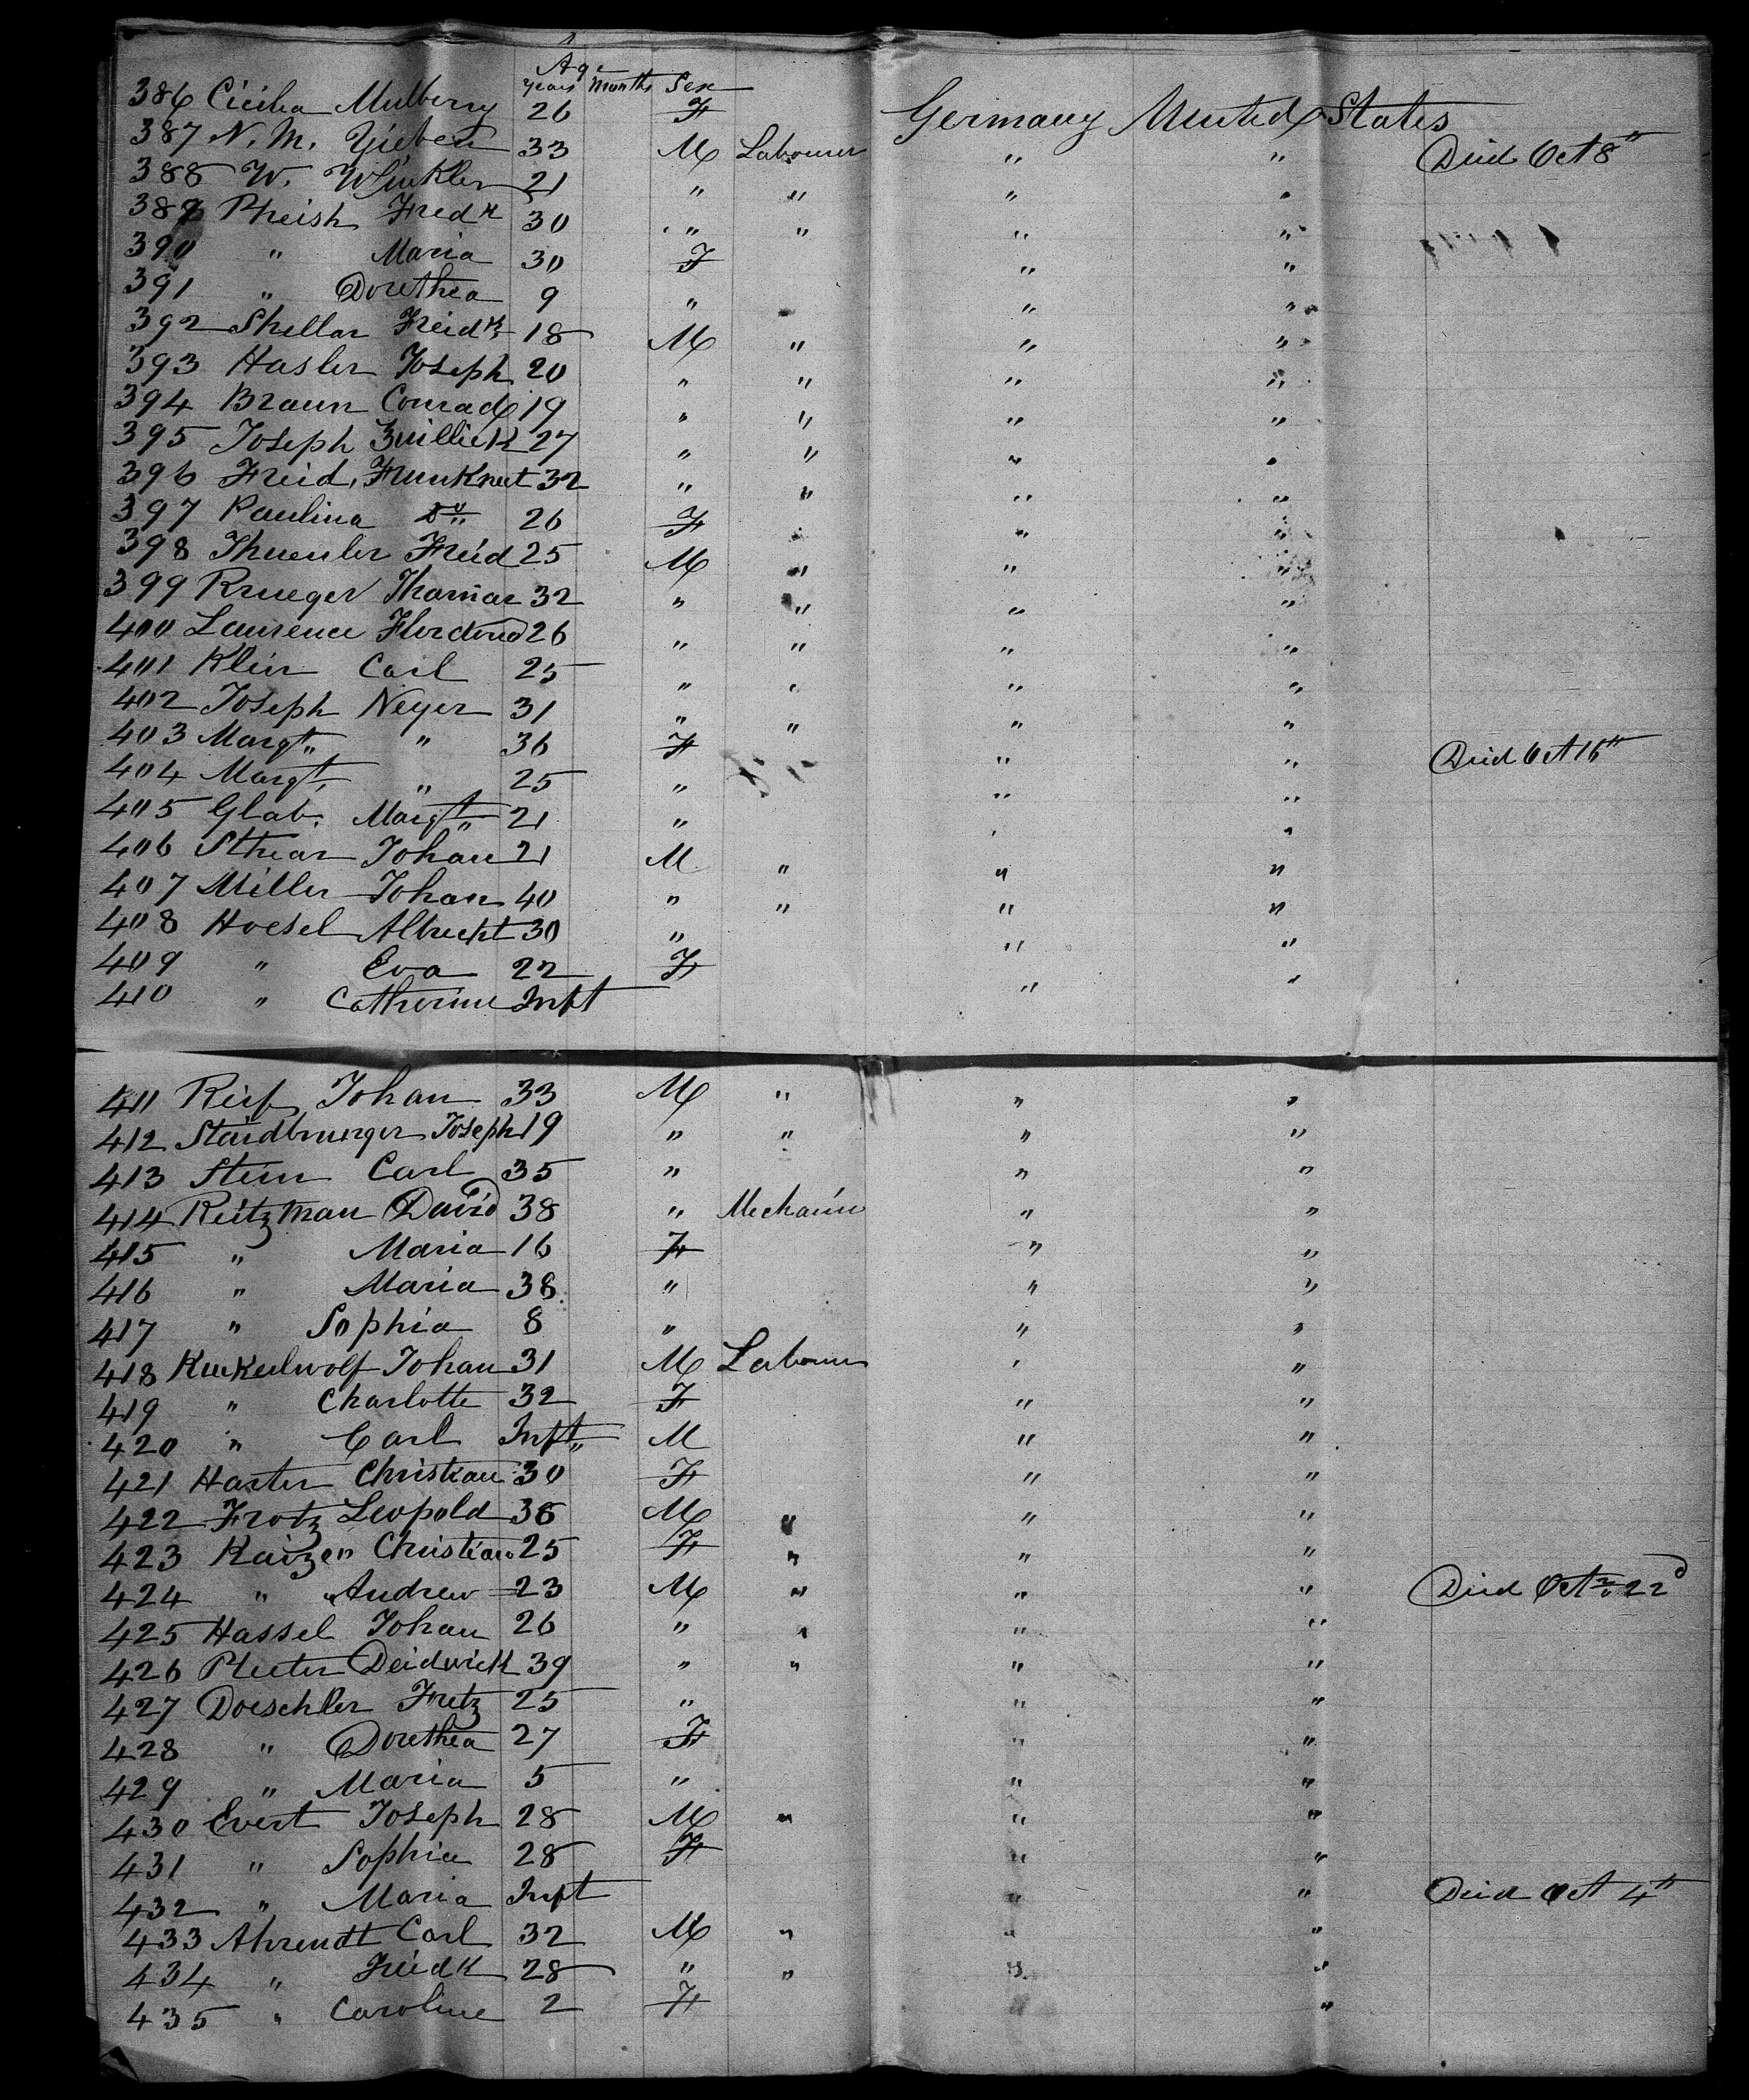 Age
Years Months Sex
386 Cicilia Mulberry 26 F Germany United States
387 N. M. Yieben 33 M Labourer " " Died Oct 8"
388 W. Winkler 21 " " " "
389 Pheish Fredk 30 " " " "
390 " Maria 30 F " "
391 " Dorethea 9 " " "
392 Shellar Freidk 18 M " " "
393 Hasler Joseph 20 " " " "
394 Braun Conrad 19 " " " "
395 Joseph Zuillick 27 " " " "
396 Freid. Frunknut 32 " " " "
397 Paulina do 26 F " "
398 Thuenler Freid 25 M " " "
399 Krueger Thomas 32 " " " "
400 Laurence Flerdend 26 " " " "
401 Klein Carl 25 " " " "
402 Joseph Neyer 31 " " " "
403 Margt " 36 F " " Died Oct 16"
404 Margt " 25 " " "
405 Glab. Margt 21 " " "
406 Sthear Johan 21 M " " "
407 Miller Johan 40 " " " "
408 Hoesel Albrecht 30 " " "
409 " Eva 22 F " "
410 " Catherine Inft " "
411 Reif Johan 33 M " " "
412 Staidbrunger Joseph 19 " " " "
413 Stein Carl 35 " " "
414 Reitzman David 38 " Mechanic " "
415 " Maria 16 F " "
416 " Maria 38 " " "
417 " Sophia 8 " " "
418 Kuckeulwolf Johan 31 M Labourer " "
419 " Charlotte 32 F " "
420 " Carl Inft M " "
421 Harter Christian 30 F " "
422 Frotz Leopold 36 M " " "
423 Kaizen Christian 25 F " " "
424 " Andrew 23 M " " " Died Oct 22d
425 Hassel Johan 26 " " " "
426 Pleeter Deidwick 39 " " " "
427 Doeschler Fretz 25 " " "
428 " Dorethea 27 F " "
429 " Maria 5 " " "
430 Evert Joseph 28 M " " "
431 " Sophia 28 F " "
432 " Maria Inft " " Died Oct 4th
433 Ahrendt Carl 32 M " " "
434 " Freidk 28 " " " "
435 " Caroline 2 F " "